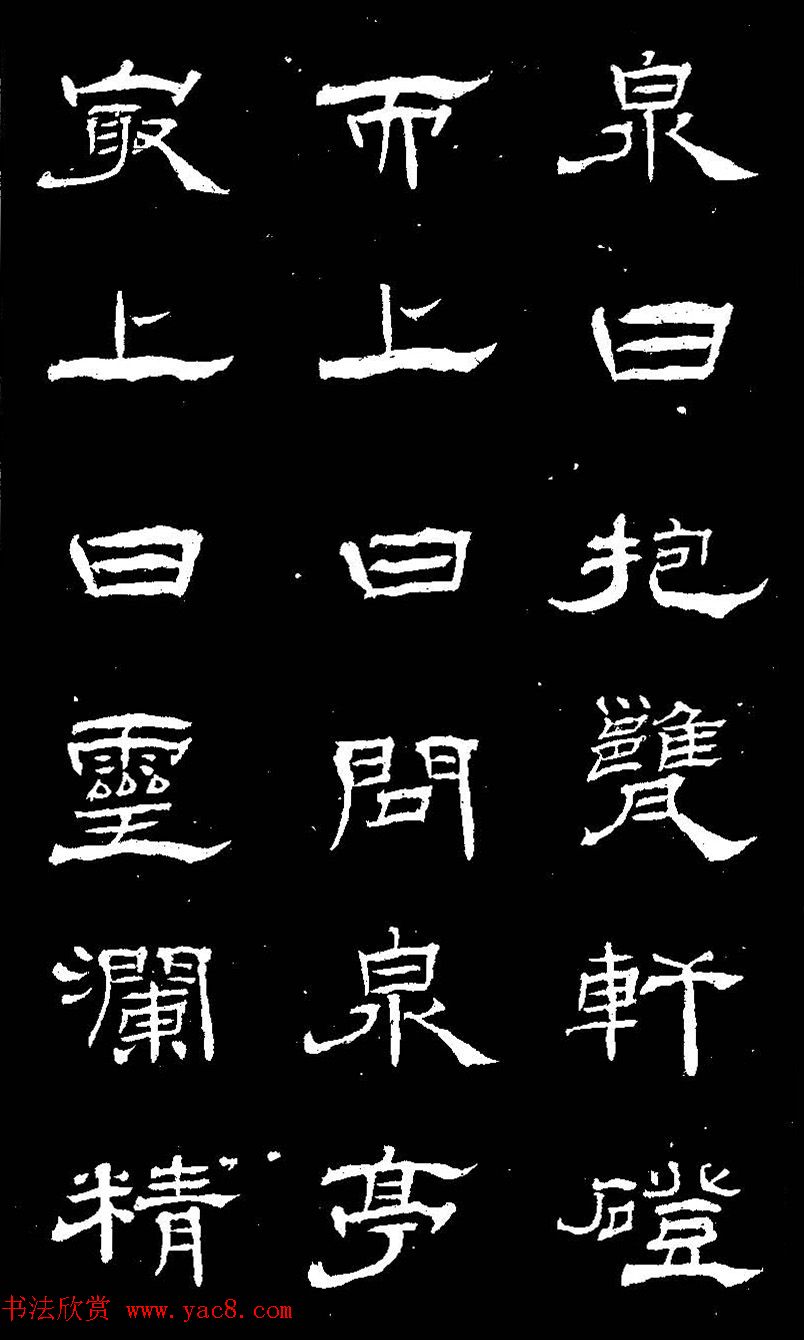 泉曰抱甕軒磴
而上曰問泉亭
冣上曰靈瀾精
书法欣赏 www.yac8.com